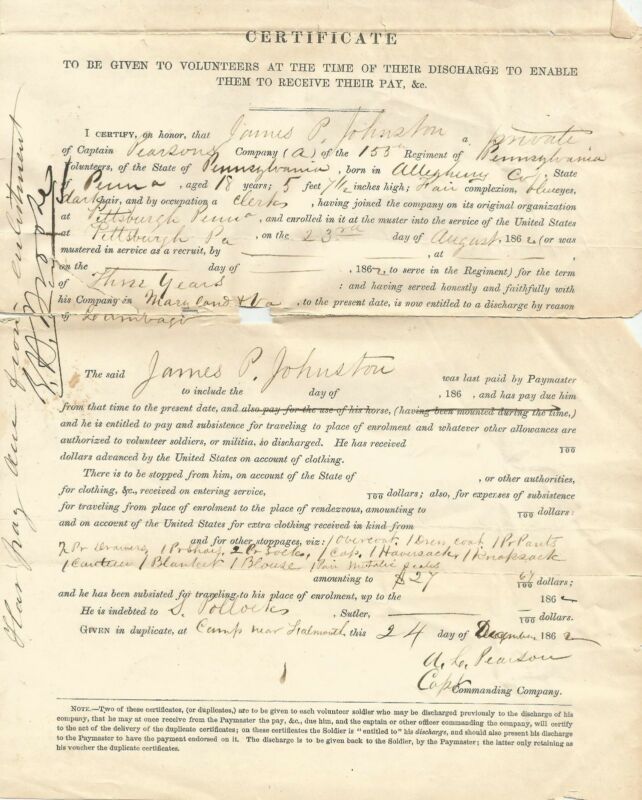 CERTIFICATE
TO BE GIVEN TO VOLUNTEERS AT THE TIME OF THEIR DISCHARGE TO ENABLE
THEM TO RECEIVE THEIR PAY, &c.
I CERTIFY, on honor, that James P. Johnston a private
of Captain Pearsons Company (A) of the 155th Regiment of Pennsylvania
Volunteers, of the State of Pennsylvania, born in Allegheny Co, State
of Penna, aged 18 years; 5 feet 7½ inches high; Fair complexion, blue eyes,
dark hair, and by occupation a clerk, having joined the company on its original organization
at Pittsburgh Penna, and enrolled in it at the muster into the service of the United States
at Pittsburgh Pa, on the 23rd day of August, 1862, (or was
mustered in service as a recruit, by at
on the day of , 1862, to serve in the Regiment) for the term
of Three Years : and having served honestly and faithfully with
his Company in Maryland & Va, to the present date, is now entitled to a discharge by reason
of Lumbago
The said James P. Johnston was last paid by Paymaster
to include the day of , 186 , and has pay due him
from that time to the present date, and also pay for the use of his horse, (having been mounted during the time,)
and he is entitled to pay and subsistence for traveling to place of enrolment and whatever other allowances are
authorized to volunteer soldiers, or militia, so discharged. He has received 100
dollars advanced by the United States on account of clothing.
There is to be stopped from him, on account of the State of , or other authorities,
for clothing, &c., received on entering service, 100 dollars; also, for expenses of subsistence
for traveling from place of enrolment to the place of rendezvous, amounting to 100 dollars:
and on account of the United States for extra clothing received in kind from
and for other stoppages, viz: 1 Overcoat 1 Dress coat 1 Pr Pants
2 Pr Drawers 1 Pr 2 Pr Socks, 1 Cap, 1 Haversack 1 Knapsack
1 Canteen 1 Blanket 1 Blouse 1 Pair
amounting to $27 67/100 dollars;
and he has been subsisted for traveling to his place of enrolment, up to the 1862
He is indebted to S. Pollocks, Sutler, 100 dollars.
GIVEN in duplicate, at Camp near Falmouth, this 24 day of December 1862
A. L. Pearson
Capt Commanding Company.
NOTE.—Two of these certificates, (or duplicates,) are to be given to each volunteer soldier who may be discharged previously to the discharge of his
company, that he may at once receive from the Paymaster the pay, &c., due him, and the captain or other officer commanding the company, will certify
to the act of the delivery of the duplicate certificates; on these certificates the Soldier is "entitled to" his discharge, and should also present his discharge
to the Paymaster to have the payment endorsed on it. The discharge is to be given back to the Soldier, by the Paymaster; the latter only retaining as
his voucher the duplicate certificates.
Has pay due from enlistment